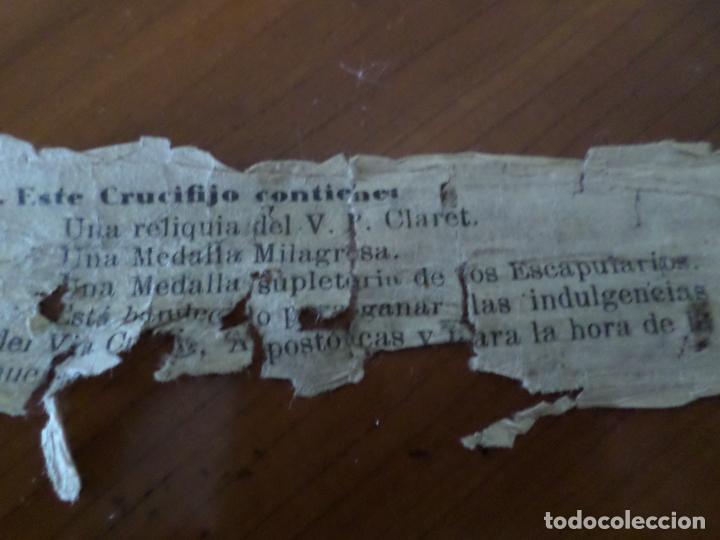 . Este Crucifijo contiene:
Una reliquia del V. P. Claret.
Una Medalla Milagrosa.
Una Medalla supletoria de los Escapularios.
Está bendecido para ganar las indulgencias
del Via Crucis, Apostólicas y para la hora de la
mue
todocoleccion